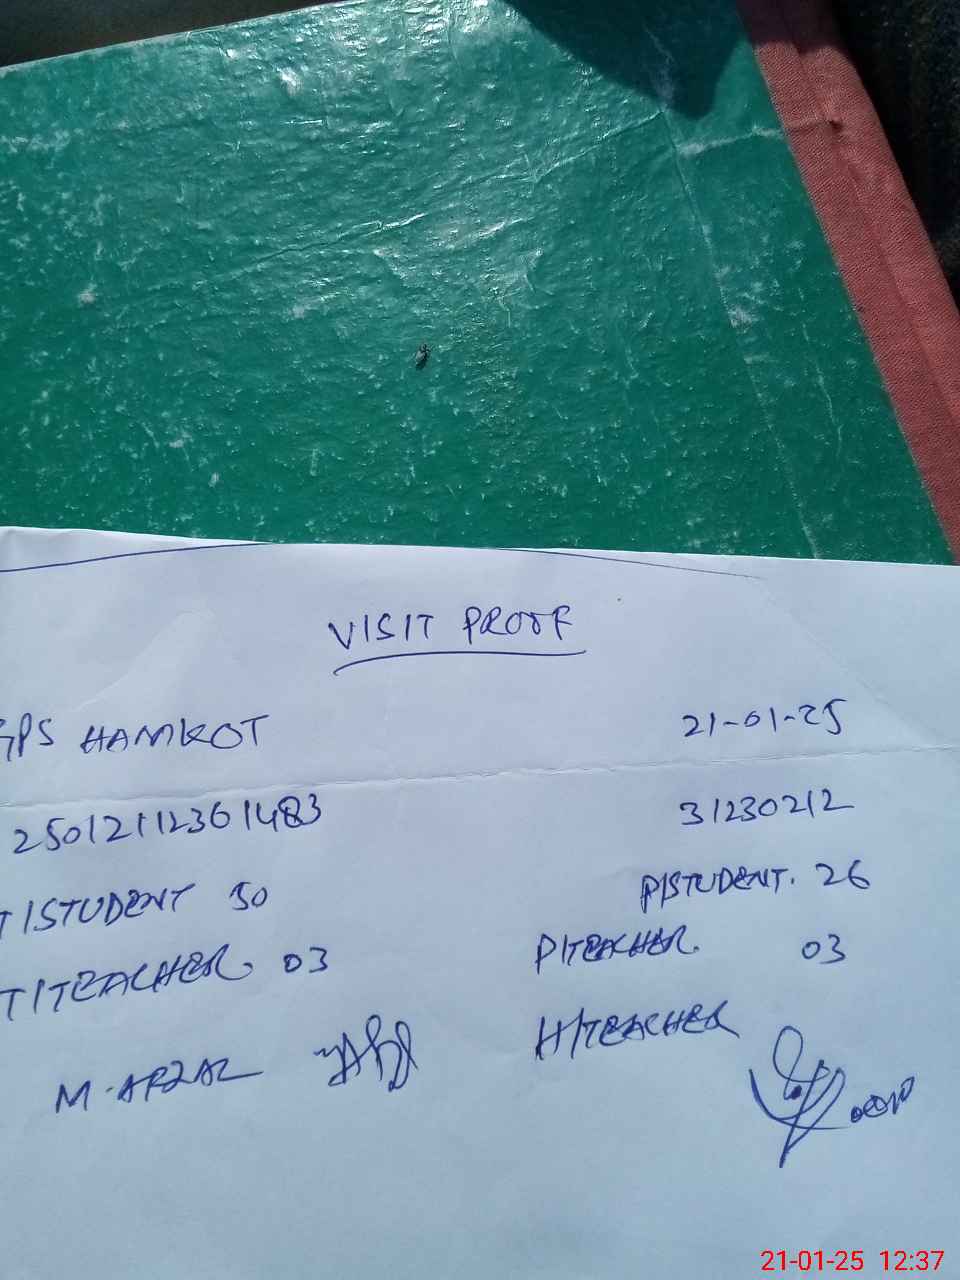 VISIT PROOF
GPS HAMKOT 21-01-25
25012112361483 31230212
T/STUDENT 50 P/STUDENT. 26
T/TEACHER 03 P/TEACHER. 03
M. AFZAL H/TEACHER
21-01-25 12:37